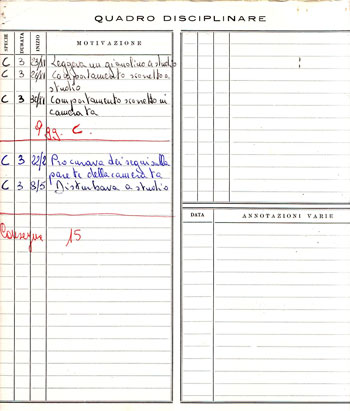 QUADRO DISCIPLINARE
SPECIE DURATA INIZIO MOTIVAZIONE
C 3 23/11 Leggeva un giornalino a studio
C 3 24/11 Comportamento scorretto a
studio
C 3 30/11 Comportamento scorretto in
camerata
9 gg. C.
C 3 22/2 Procurava dei segni sulla
parete della camerata
C 3 8/5 Disturbava a studio
Consegna 15
DATA ANNOTAZIONI VARIE